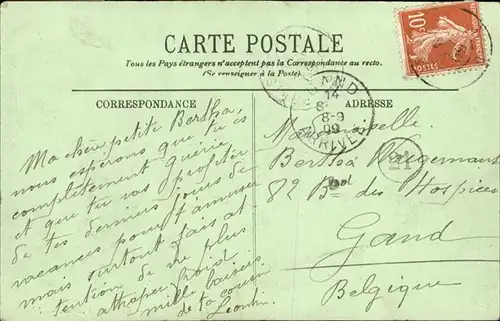 CARTE POSTALE
Tous les Pays étrangers n'acceptent pas la Correspondance au recto.
(Se renseigner à la Poste)
CORRESPONDANCE
Ma chère petite Bertha,
nous espérons que tu es
complètement guérie
et que tu vas profiter
de tes derniers jours de
vacances pour t'amuser
mais surtout fais at-
tention de ne plus
attraper froid
mille baisers
de ta cousine
Leontine
ADRESSE
Mademoiselle
Bertha
82 Bd des Hospices
Gand
Belgique
10c
GAND
14
8-9
09
ARRIVEE